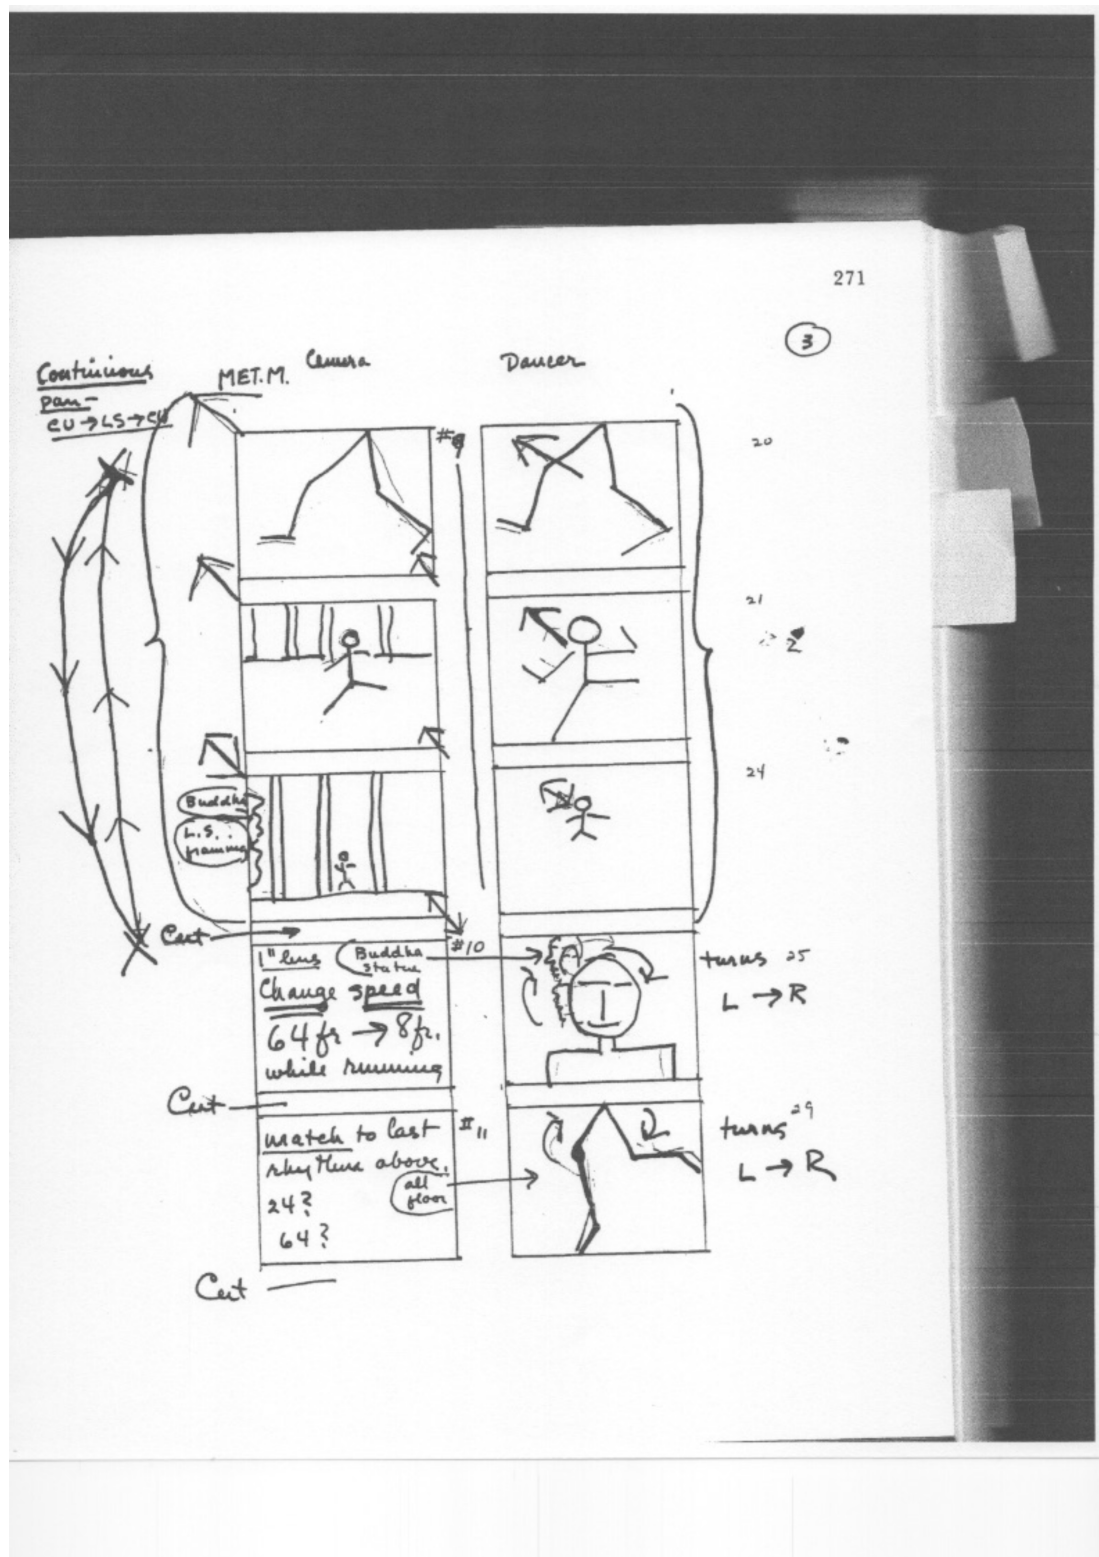 271
3
Continuious
pan—
CU → LS → CU
MET. M.
Camera
Dancer
#9
20
21
2
24
Buddha
L.S.
framing
Cut
#10
1" lens
Buddha
statue
Change speed
64 fr → 8 fr.
while running
turns 25
L → R
Cut
#11
match to last
rhythm above.
24?
64?
all
floor
turns 29
L → R
Cut